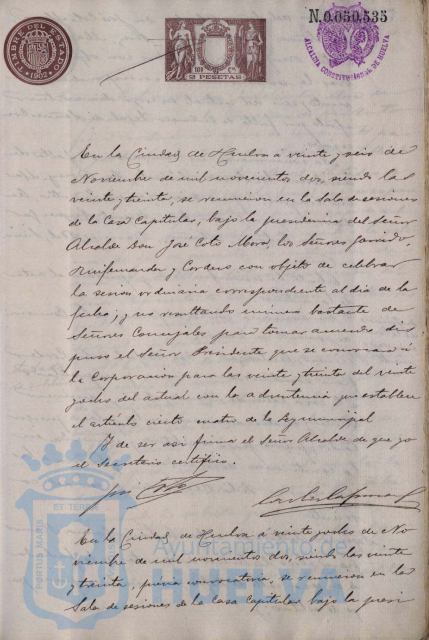 TIMBRE DEL ESTADO
1902
2 PESETAS
N.0.050.535
ALCALDIA CONSTITUCIONAL DE HUELVA
En la Ciudad de Huelva á veinte y seis de
Noviembre de mil novecientos dos, siendo las
veinte y treinta, se reunieron en la Sala de sesiones
de la Casa Capitular, bajo la presidencia del Señor
Alcalde Don José Coto Mora, los Señores Garrido,
Ruifernandez y Cordero con objeto de celebrar
la sesion ordinaria correspondiente al dia de la
fecha; y no resultando número bastante de
Señores Concejales para tomar acuerdo dis
puso el Señor Presidente que se convocara á
la Corporacion para las veinte y treinta del veinte
y ocho del actual con la advertencia que establece
el artículo ciento cuatro de la Ley municipal
Y de ser asi firma el Señor Alcalde de que yo
el Secretario certifico.
José Coto
En la Ciudad de Huelva á veinte y ocho de No
viembre de mil novecientos dos, siendo las veinte
y treinta, previa convocatoria, se reunieron en la
Sala de sesiones de la Casa Capitular bajo la presi
Ayuntamiento de
HUELVA
PORTUS MARIS
ET TERRE